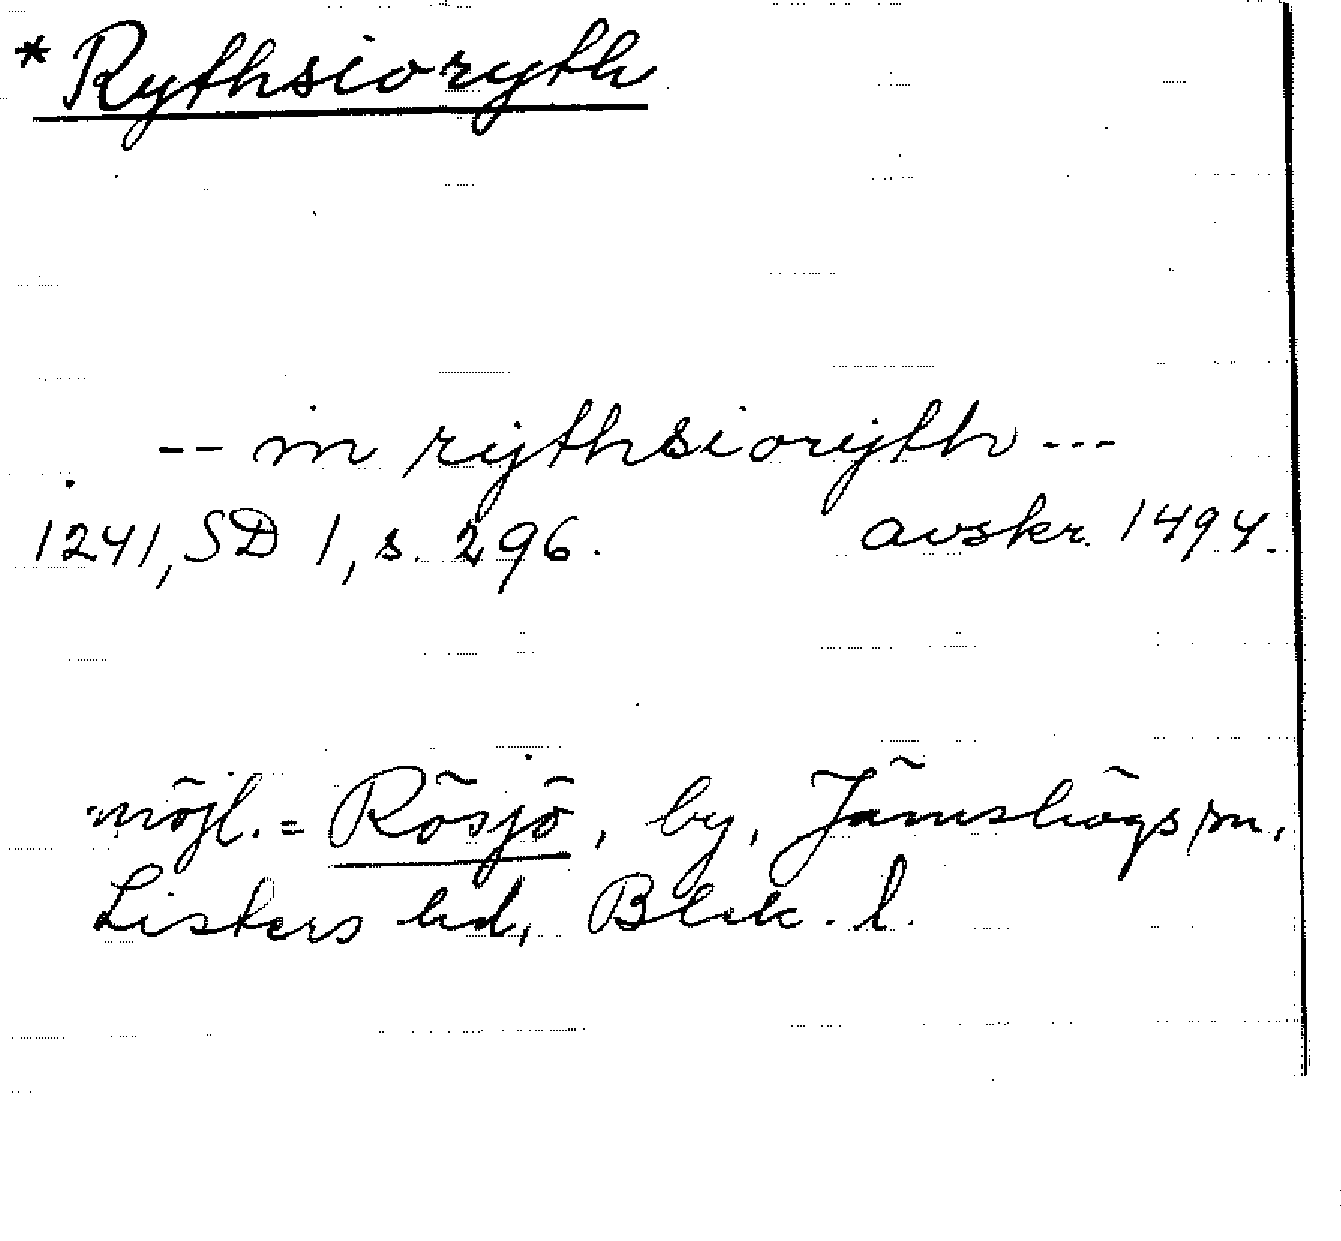 * Rythsioryth
-- in rythsioryth ---
1241, SD 1, s. 296. avskr. 1494.
möjl. = Rösjö, by, Jämshögs sn,
Listers hd, Blek. l.